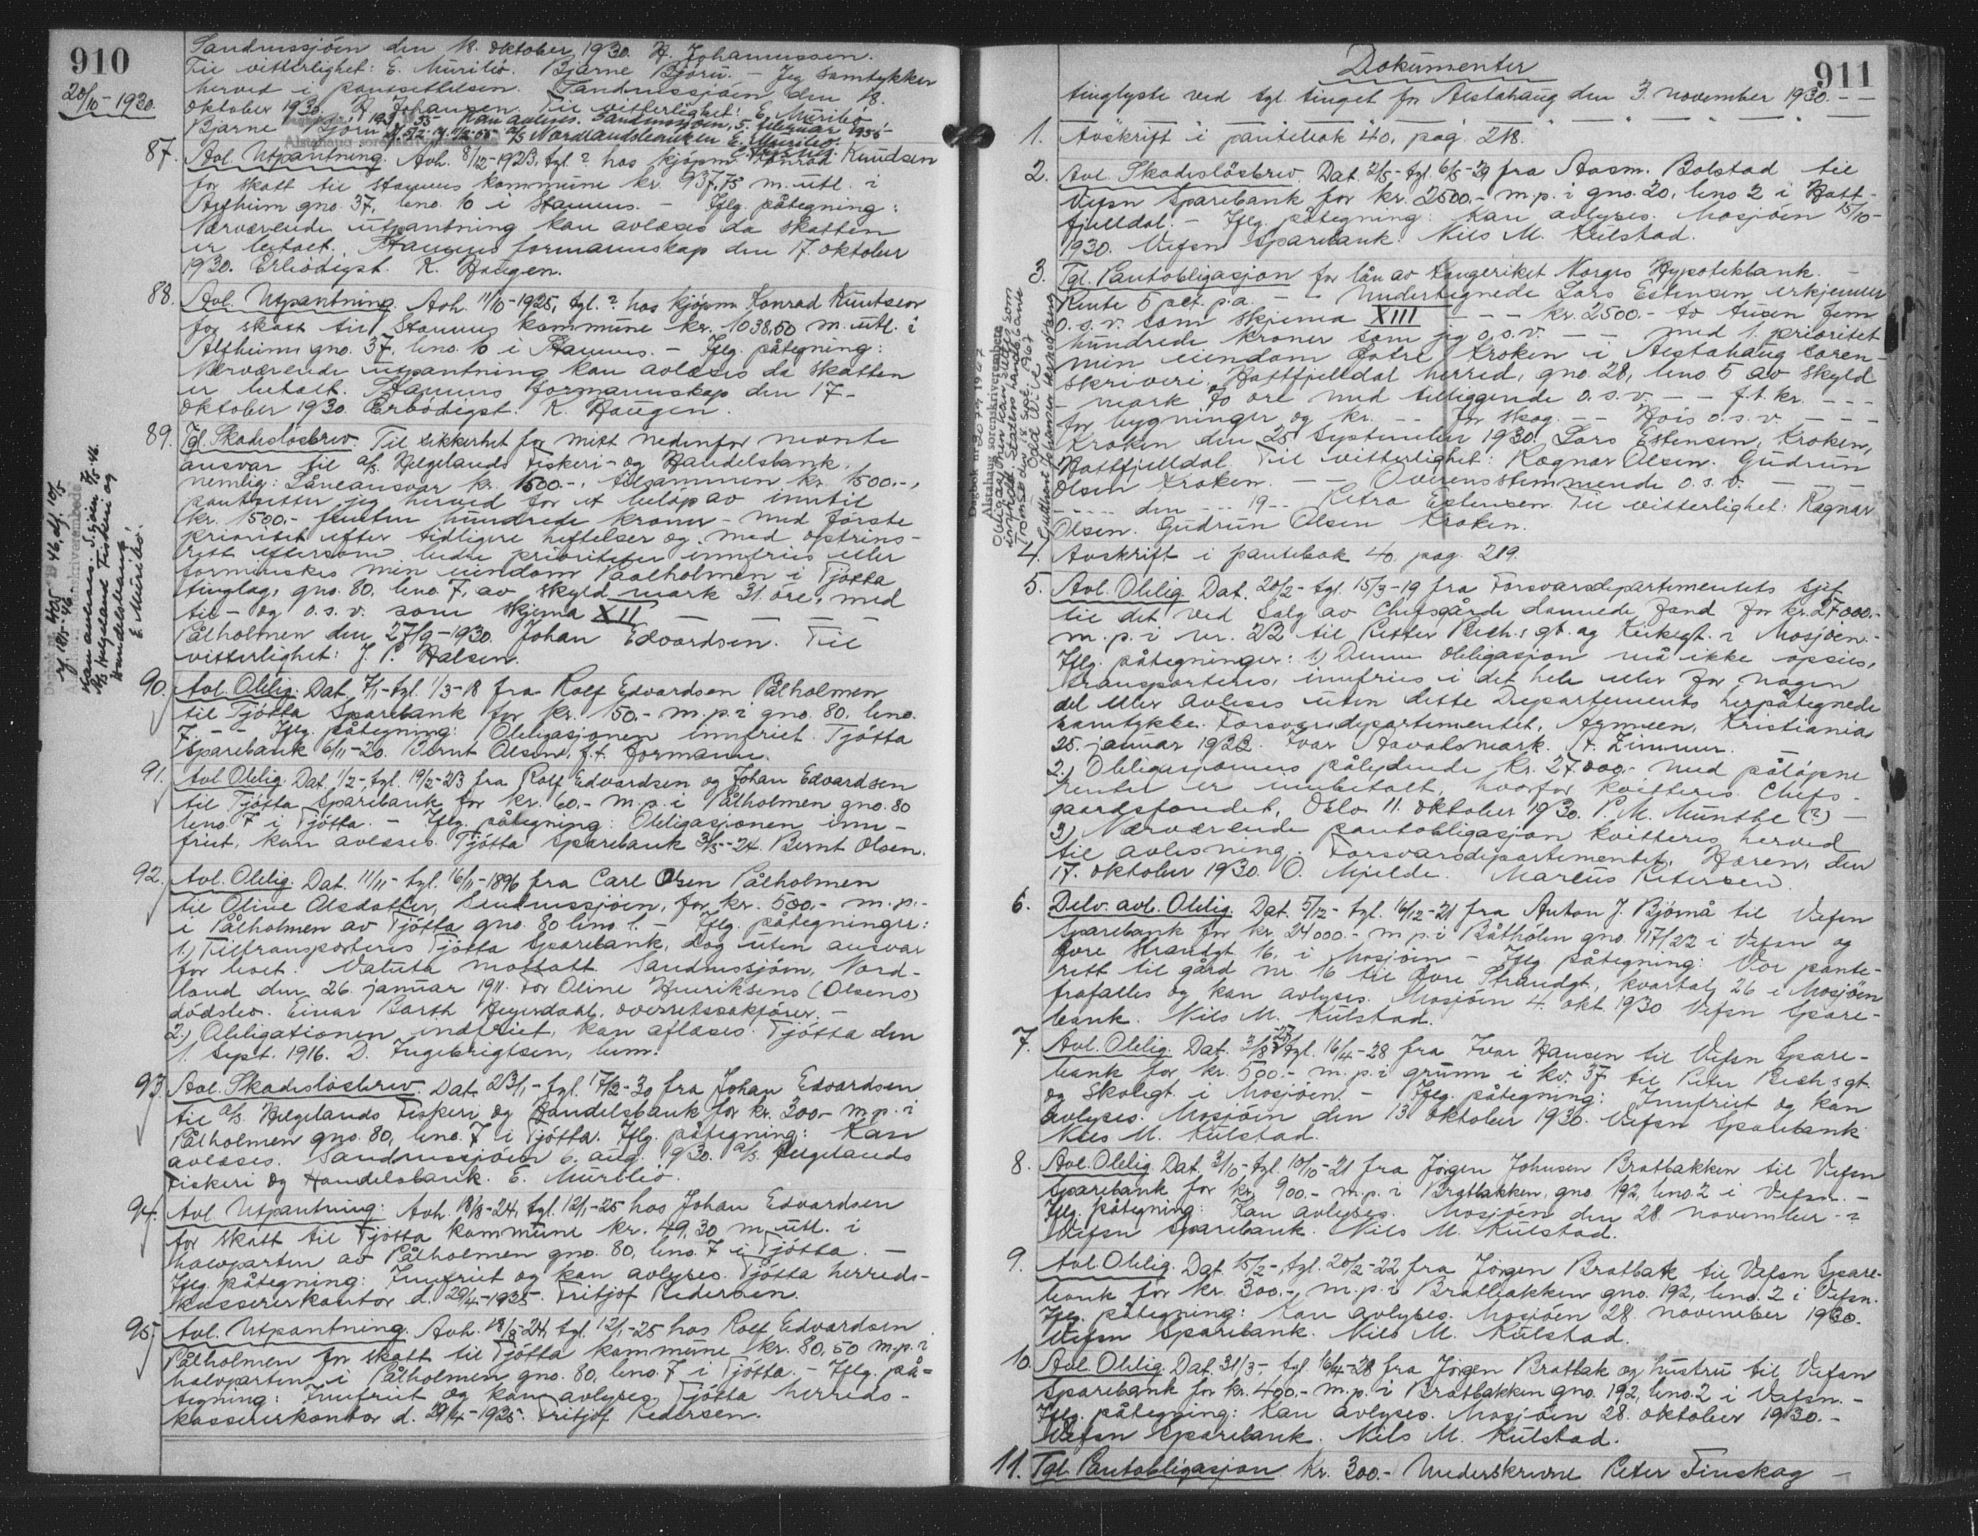 910
20/10-1930.
Sandnessjöen den 18. oktober 1930. H. Johannessen.
Til vitterlighet: E. Muribö. Bjarne Björu. - Jeg samtykker
herved i pantsettelsen. Sandnessjöen den 18.
oktober 1930. H. Johansen. Til vitterlighet: E. Muribö
Bjarne Björu
Kan avleses. Sandnessjöen, 5. februar 1955
A/S Nordlandsbanken E. Muribö.
87. Avl. Utpantning. Avh. 8/12-1923, tgl. ? hos kjöpm. Konrad Knudsen
for skatt til Stamnes kommune kr. 937,75 m. utl. i
Altheim gno. 37, bno. 10 i Stamnes. - Iflg. påtegning:
Nærværende utpantning kan avleses da skatten
er betalt. Stamnes formannskap den 17. oktober
1930. Erbödigst. K. Haugen.
88. Avl. Utpantning. Avh. 11/10-1925, tgl. ? hos kjöpm. Konrad Knutsen
for skatt til Stamnes kommune kr. 1038,50 m. utl. i
Altheim gno. 37, bno. 10 i Stamnes. - Iflg. påtegning:
Nærværende utpantning kan avleses da skatten
er betalt. Stamnes formannskap den 17-
oktober 1930. Erbödigst. K. Haugen.
89. Tgl. Skadeslösbrev. Til sikkerhet for mitt nedenfor nevnte
ansvar til A/S Helgelands Fiskeri- og Handelsbank,
nemlig: Låneansvar kr. 1500.-, tilsammen kr. 1500.-,
pantsetter jeg herved for et belöp av inntil
kr. 1500.- femten hundrede kroner - med förste
prioritet efter tidligere heftelser og med optrins-
rett eftersom bedre prioriteter innfries eller
forminskes min eiendom Paalholmen i Tjötta
tinglag, gno. 80, bno. 7, av skyld mark 31 öre, med
til- og o.s.v. som skjema XII
Pålholmen den 27/9-1930. Johan Edvardsen. Til
vitterlighet: J. P. Halsen.
90. Avl. Oblig. Dat. 7/1- tgl. 1/3-18 fra Rolf Edvardsen Pålholmen
til Tjötta Sparebank for kr. 150.- m.p. i gno. 80. bno.
7. - - Iflg. påtegning: Obligasjonen innfriet. Tjötta
Sparebank 6/11-20. Bernt Olsen, f.t. formann.
91. Avl. Oblig. Dat. 1/2- tgl. 19/2-23 fra Rolf Edvardsen og Johan Edvardsen
til Tjötta Sparebank for kr. 60.- m.p. i Pålholmen gno. 80
bno. 7 i Tjötta. - Iflg. påtegning: Obligasjonen inn-
friet, kan avleses. Tjötta Sparebank 3/5-24. Bernt Olsen.
92. Avl. Oblig. Dat. 11/11- tgl. 16/11-1896 fra Carl Olsen Pålholmen
til Oline Olsdatter, Sandnessjöen, for kr. 500.- m.p.
i Pålholmen av Tjötta gno. 80 bno. 1. - Iflg. påtegninger:
1.) Tiltransporteres Tjötta Sparebank, dog uten ansvar
for boet. Valuta mottatt. Sandnessjöen, Nord-
land den 26. januar 1911. For Oline Henriksens (Olsens)
dödsbo. Einar Barth Heyerdahl, overrettssakförer. -
2.) Obligationen indfriet, kan aflæses. Tjötta den
1. Sept. 1916. D. Ingebrigtsen, lens.
93. Avl. Skadeslösbrev. Dat. 23/1- tgl. 17/2-30 fra Johan Edvardsen
til A/S Helgelands Fiskeri og Handelsbank for kr. 300.- m.p. i
Pålholmen gno. 80, bno. 7 i Tjötta. Iflg. påtegning: Kan
avleses. Sandnessjöen 6. aug. 1930. A/S Helgelands
Fiskeri og Handelsbank. E. Muribö.
94. Avl. Utpantning: Avh. 18/3-24, tgl. 12/1-25 hos Johan Edvardsen
for skatt til Tjötta kommune kr. 49,30 m. utl. i
halvparten av Pålholmen gno. 80, bno. 7 i Tjötta. -
Iflg. påtegning: Innfriet og kan avlyses. Tjötta herreds-
kassererkontor d. 29/4-1925. Fritjof Pedersen.
95. Avl. Utpantning. Avh. 18/3-24, tgl. 12/1-25 hos Rolf Edvardsen
Pålholmen for skatt til Tjötta kommune kr. 80,50 m.p. i
halvparten i Pålholmen gno. 80, bno. 7 i Tjötta. - Iflg. på-
tegning: Innfriet og kan avlyses. Tjötta herreds-
kassererkontor d. 29/4-1925. Fritjof Pedersen.
Kan avleses. S.sjöen
A/S Helgeland Fiskeri og
Handelsbank
E. Muribö.
911
Dokumenter
tinglyste ved tgl. tinget for Alstahaug den 3. november 1930. - -
1. Avskrift i pantebok 40, pag. 218.
2. Avl. Skadeslösbrev. Dat. 2/5- tgl. 6/5-29 fra Aasm. Bolstad til
Vefsn Sparebank for kr. 2500.- m.p. i gno. 20, bno 2 i Hatt-
fjelldal. - Iflg. påtegning: Kan avlyses. Mosjöen 15/10-
1930. Vefsn Sparebank. Nils M. Kulstad.
3. Tgl. Pantobligasjon for lån av Kongeriket Norges Hypotekbank. -
Rente 5 pct. p.a. - - Undertegnede Lars Estensen erkjenner
o.s.v. som skjema XIII - - - kr. 2500.- to tusen fem
hundrede kroner som jeg o.s.v. - - med 1. prioritet
min eiendom Övre Kroken i Alstahaug soren-
skriveri, Hattfjelldal herred, gno. 28, bno 5 av skyld
- mark 70 öre med tilliggende o.s.v. - - f.t. kr. - - -
for bygninger og kr. - - for skog. - - Hvis o.s.v. - - -
Kroken den 25 September 1930. Lars Estensen, Kroken,
Hattfjelldal. Til vitterlighet: Ragnar Olsen. Gudrun
Olsen Kroken. - - Overensstemmende o.s.v. - - -
- - - den - - 19 - - Petra Estensen. Til vitterlighet: Ragnar
Olsen. Gudrun Olsen Kroken.
4. Avskrift i pantebok 40. pag. 219.
5. Avl. Oblig. Dat. 20/2- tgl. 15/3-19 fra Forsvarsdepartementets sjef
til det ved salg av Chefsgårde dannede fond for kr. 27000.-
m.p. i nr. 22 til Petter Bech s gt. og Kirkegt. i Mosjöen.-
Iflg. påtegninger: 1.) Denne obligasjon må ikke opsies,
transporteres, innfries i det hele eller for nogen
del eller avleses uten dette Departements herpåtegnede
samtykke. Forsvarsdepartementet, Armeen, Kristiania
25. januar 1922. Ivar Aavatsmark. A. Zimmer.
2.) Obligasjonens pålydende kr. 27.000.- med påløpne
renter er innbetalt, hvorfor kvitteres. Chefs-
gaardsfondet, Oslo 11. oktober 1930. P. M. Munthe (?) -
3.) Nærværende pantobligasjon kvitteres herved
til avlesning. Forsvarsdepartementet, Hæren, den
17. oktober 1930. O. Mjelde. Marcus Petersen.
6. Delv. avl. Oblig. Dat. 5/12- tgl. 16/12-21 fra Anton J. Björnå til Vefsn
Sparebank for kr. 24000.- m.p. i Båthölen gno. 117/22 i Vefsn og
Övre Strandgt. 16, i Mosjöen - Iflg. påtegning: Vor pante-
rett til gård nr. 16 til Övre Strandgt, kvartal 26 i Mosjöen
frafalles og kan avlyses. Mosjöen 4. okt. 1930. Vefsn Spare-
bank. Nils M. Kulstad.
7. Avl. Oblig. Dat. 3/8 27 tgl. 16/4-28 fra Ivar Hansen til Vefsn Spare-
bank for kr. 500.- m.p. i grunn i kv. 37 til Peter Bech s gt.
og Skolegt. i Mosjöen. - Iflg. påtegning: Innfriet og kan
avlyses. Mosjöen den 13. oktober 1930. Vefsn Sparebank
Nils M. Kulstad.
8. Avl. Oblig. Dat. 3/10- tgl. 10/10-21 fra Jörgen Johnsen Bratbakken til Vefsn
Sparebank for kr. 900.- m.p. i Bratbakken, gno. 192, bno. 2 i Vefsn. -
Iflg. påtegning: Kan avlyses. Mosjöen den 28. november - ?
Vefsn Sparebank. Nils M. Kulstad.
9. Avl. Oblig. Dat. 15/2-, tgl. 20/2-22 fra Jörgen Bratbak til Vefsn Spare-
bank for kr. 300.-, m.p. i Bratbakken gno. 192, bno. 2 i Vefsn.
Iflg. påtegning: Kan avlyses. Mosjöen 28. november 1930.
Vefsn Sparebank. Nils M. Kulstad.
10. Avl. Oblig. Dat. 31/3-, tgl. 16/4-28 fra Jörgen Bratbak og hustru til Vefsn
Sparebank for kr. 400.- m.p. i Bratbakken gno. 192, bno. 2 i Vefsn. -
Iflg. påtegning: Kan avlyses. Mosjöen 28. oktober 1930. -
Vefsn Sparebank. Nils M. Kulstad.
11. Tgl. Pantobligasjon Kr. 300.- Underskrevne Peter Finskog -